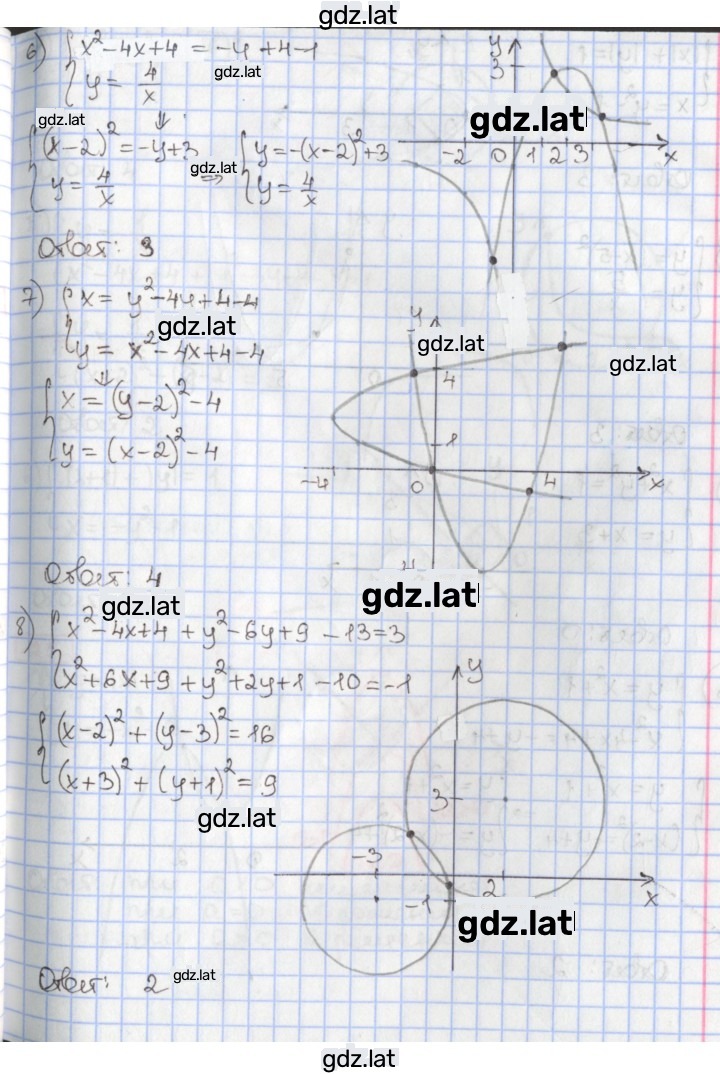 gdz.lat
6) { x² - 4x + 4 = -y + 4 - 1
{ y = 4/x
gdz.lat
gdz.lat
{ (x-2)² = -y + 3
{ y = 4/x
gdz.lat
⇒
{ y = -(x-2)² + 3
{ y = 4/x
y
3
gdz.lat
-2 0 1 2 3 x
Ответ: 3
7) { x = y² - 4y + 4 - 4
{ y = x² - 4x + 4 - 4
gdz.lat
⇓
{ x = (y-2)² - 4
{ y = (x-2)² - 4
y
gdz.lat
gdz.lat
4
1
-4 0 4 x
Ответ: 4
gdz.lat
gdz.lat
8) { x² - 4x + 4 + y² - 6y + 9 - 13 = 3
{ x² + 6x + 9 + y² + 2y + 1 - 10 = -1
{ (x-2)² + (y-3)² = 16
{ (x+3)² + (y+1)² = 9
gdz.lat
y
3
-3
2 x
-1
gdz.lat
Ответ: 2
gdz.lat
gdz.lat